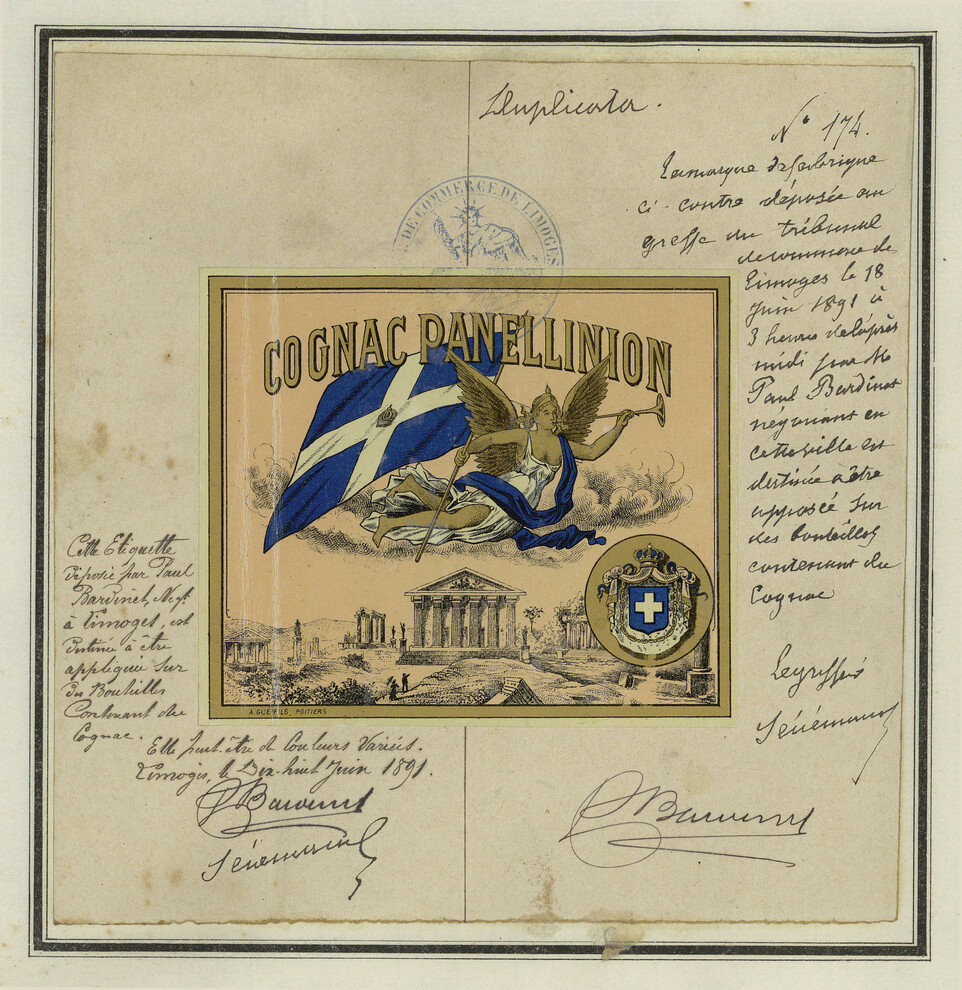 Duplicata.
N° 174.
La marque de fabrique
ci-contre déposée au
greffe du tribunal
de commerce de
Limoges le 18
Juin 1891 à
3 heures de l'après
midi par M.
Paul Bardinet
négociant en
cette ville est
destinée à être
apposée sur
des bouteilles
contenant du
Cognac
Le greffier
T. DE COMMERCE DE LIMOGES
COGNAC PANELLINION
A. GUÉ FILS, POITIERS
Cette Etiquette
déposée par Paul
Bardinet, Négt
à Limoges, est
destinée à être
appliquée sur
des Bouteilles
Contenant du
Cognac.
Elle peut être de Couleurs Variées.
Limoges, le Dix-huit Juin 1891.
P Bardinet
P Bardinet